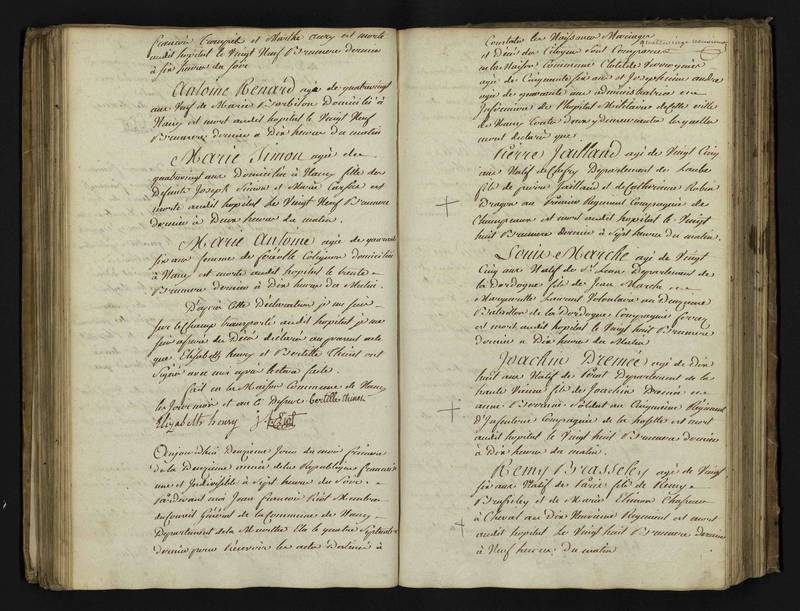 francois et Marthe est morte
audit hopital le Vingt Neuf Brumaire dernier
à six heures du soir
Antoine Renard agé de quatrevingt
ans Veuf de Marie Barbillon Domicilié à
Nancy est mort audit hopital le Vingt Neuf
Brumaire dernier à Dix heures du matin
Marie Simon agée de
quatrevingt ans Domiciliée à Nancy fille des
Defunts Joseph Simon et Marie est
morte audit hopital le Vingt Neuf Brumaire
dernier à Deux heures du matin.
Marie Antoine agée de quarante
six ans femme de Colignon domiciliée
à Nancy est morte audit hopital le trente
Brumaire dernier à Dix heures du Matin.
D'après Cette Déclaration je me suis
sur le champ transporté audit hopital je me
suis assuré du Décès déclaré au present acte
que Elisabeth henry et Bertille thiriet ont
Signé avec moi après lecture faite.
fait en la Maison Commune de Nancy
les Jour mois et an cy Dessus bertille thiriet
Elizabeth henry
Aujourd'hui Douzieme Jour du mois frimaire
de la Deuxieme année de la Republique francoise
une et Indivisible à Sept heures du Soir.
Pardevant moi Jean francois Membre
du Conseil Général de la Commune de Nancy
Departement de la Meurthe Elu le quatre Septembre
dernier pour Recevoir les actes Destinés à
Constater les Naissances Mariages
et Décès des Citoyens Sont Comparus
en la Maison Commune Clotilde
agée de Cinquante six ans et Josephine
agée de quarante ans
Infirmiere de l'hopital Militaire de Cette ville
de Nancy toutes deux y demeurantes lesquelles
mont declaré que
Pierre Jailland agé de Vingt Cinq
ans Natif de Departement de Laube
fils de pierre Jailland et de Catherine Robin
Dragon au Premier Regiment Compagnie de
est mort audit hopital le Vingt
huit Brumaire dernier à Sept heures du matin.
Louis Marche agé de Vingt
Cinq ans Natif de St. Leon Departement de
la Dordogne fils de Jean Marche et de
Marguerite Laurent Volontaire au Deuxieme
Bataillon de la Dordogne Compagnie
est mort audit hopital le Vingt huit Brumaire
dernier à Dix heures du Matin
Joachin Dremée agé de Dix
huit ans Natif de Departement de la
haute Vienne fils de Joachin Dremée et de
anne Soldat au Cinquieme Regiment
d'Infanterie Compagnie de est mort
audit hopital le Vingt huit Brumaire dernier
à Dix heures du matin.
Remy Brasseley agé de Vingt
six ans Natif de Paris fils de Remy
et de Marie Chasseur
à Cheval au Dix Neuvieme Regiment est mort
audit hopital le Vingt huit Brumaire dernier
à Neuf heures du matin